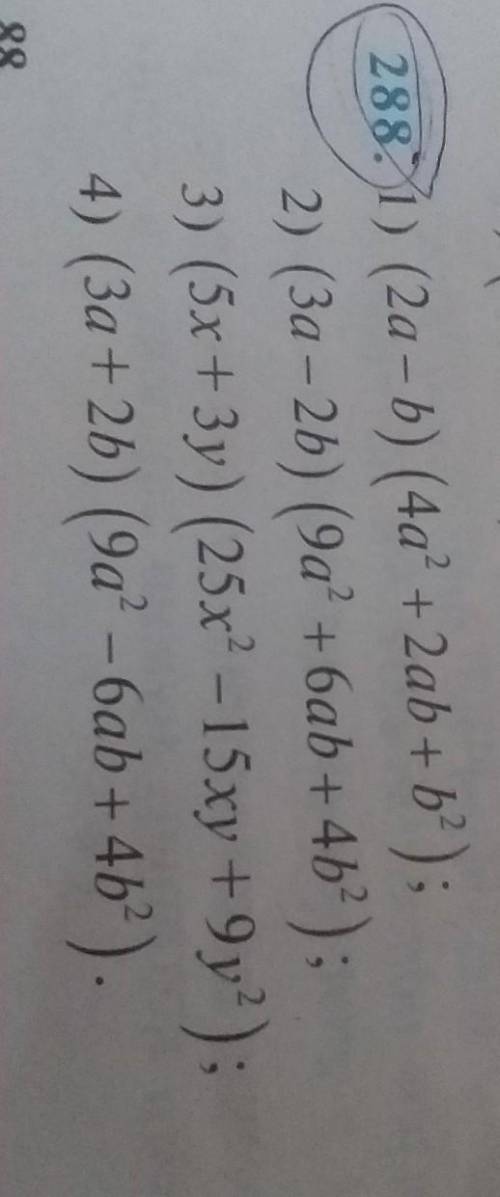 288. 1) (2a – b) (4a² + 2ab + b²);
2) (3a – 2b) (9a² + 6ab + 4b²);
3) (5x + 3y) (25x² – 15xy + 9y²);
4) (3a + 2b) (9a² – 6ab + 4b²).
88